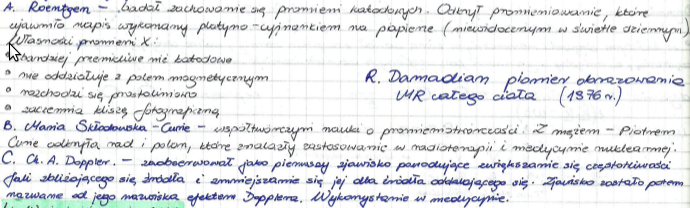 A. Röentgen - badał zachowanie się promieni katodowych. Odkrył promieniowanie, które
ujawniło napis wykonany platyno-cyjnankiem na papierze (niewidocznym w świetle dziennym)
Własności promieni X:
• bardziej przenikliwe niż katodowe
• nie oddziałuje z polem magnetycznym
• rozchodzi się prostoliniowo
• zaciemnia kliszę fotograficzną
R. Damadian pionier obrazowania
MR całego ciała (1976 r.)
B. Maria Skłodowska-Curie - współtwórczyni nauki o promieniotwórczości. Z mężem - Piotrem
Curie odkryła rad i polon, które znalazły zastosowanie w radioterapii i medycynie nuklearnej.
C. Ch. A. Doppler. - zaobserwował jako pierwszy zjawisko powodujące zwiększanie się częstotliwości
fali zbliżającego się źródła i zmniejszanie się jej dla źródła oddalającego się. Zjawisko zostało potem
nazwane od jego nazwiska efektem Dopplera. Wykorzystanie w medycynie.